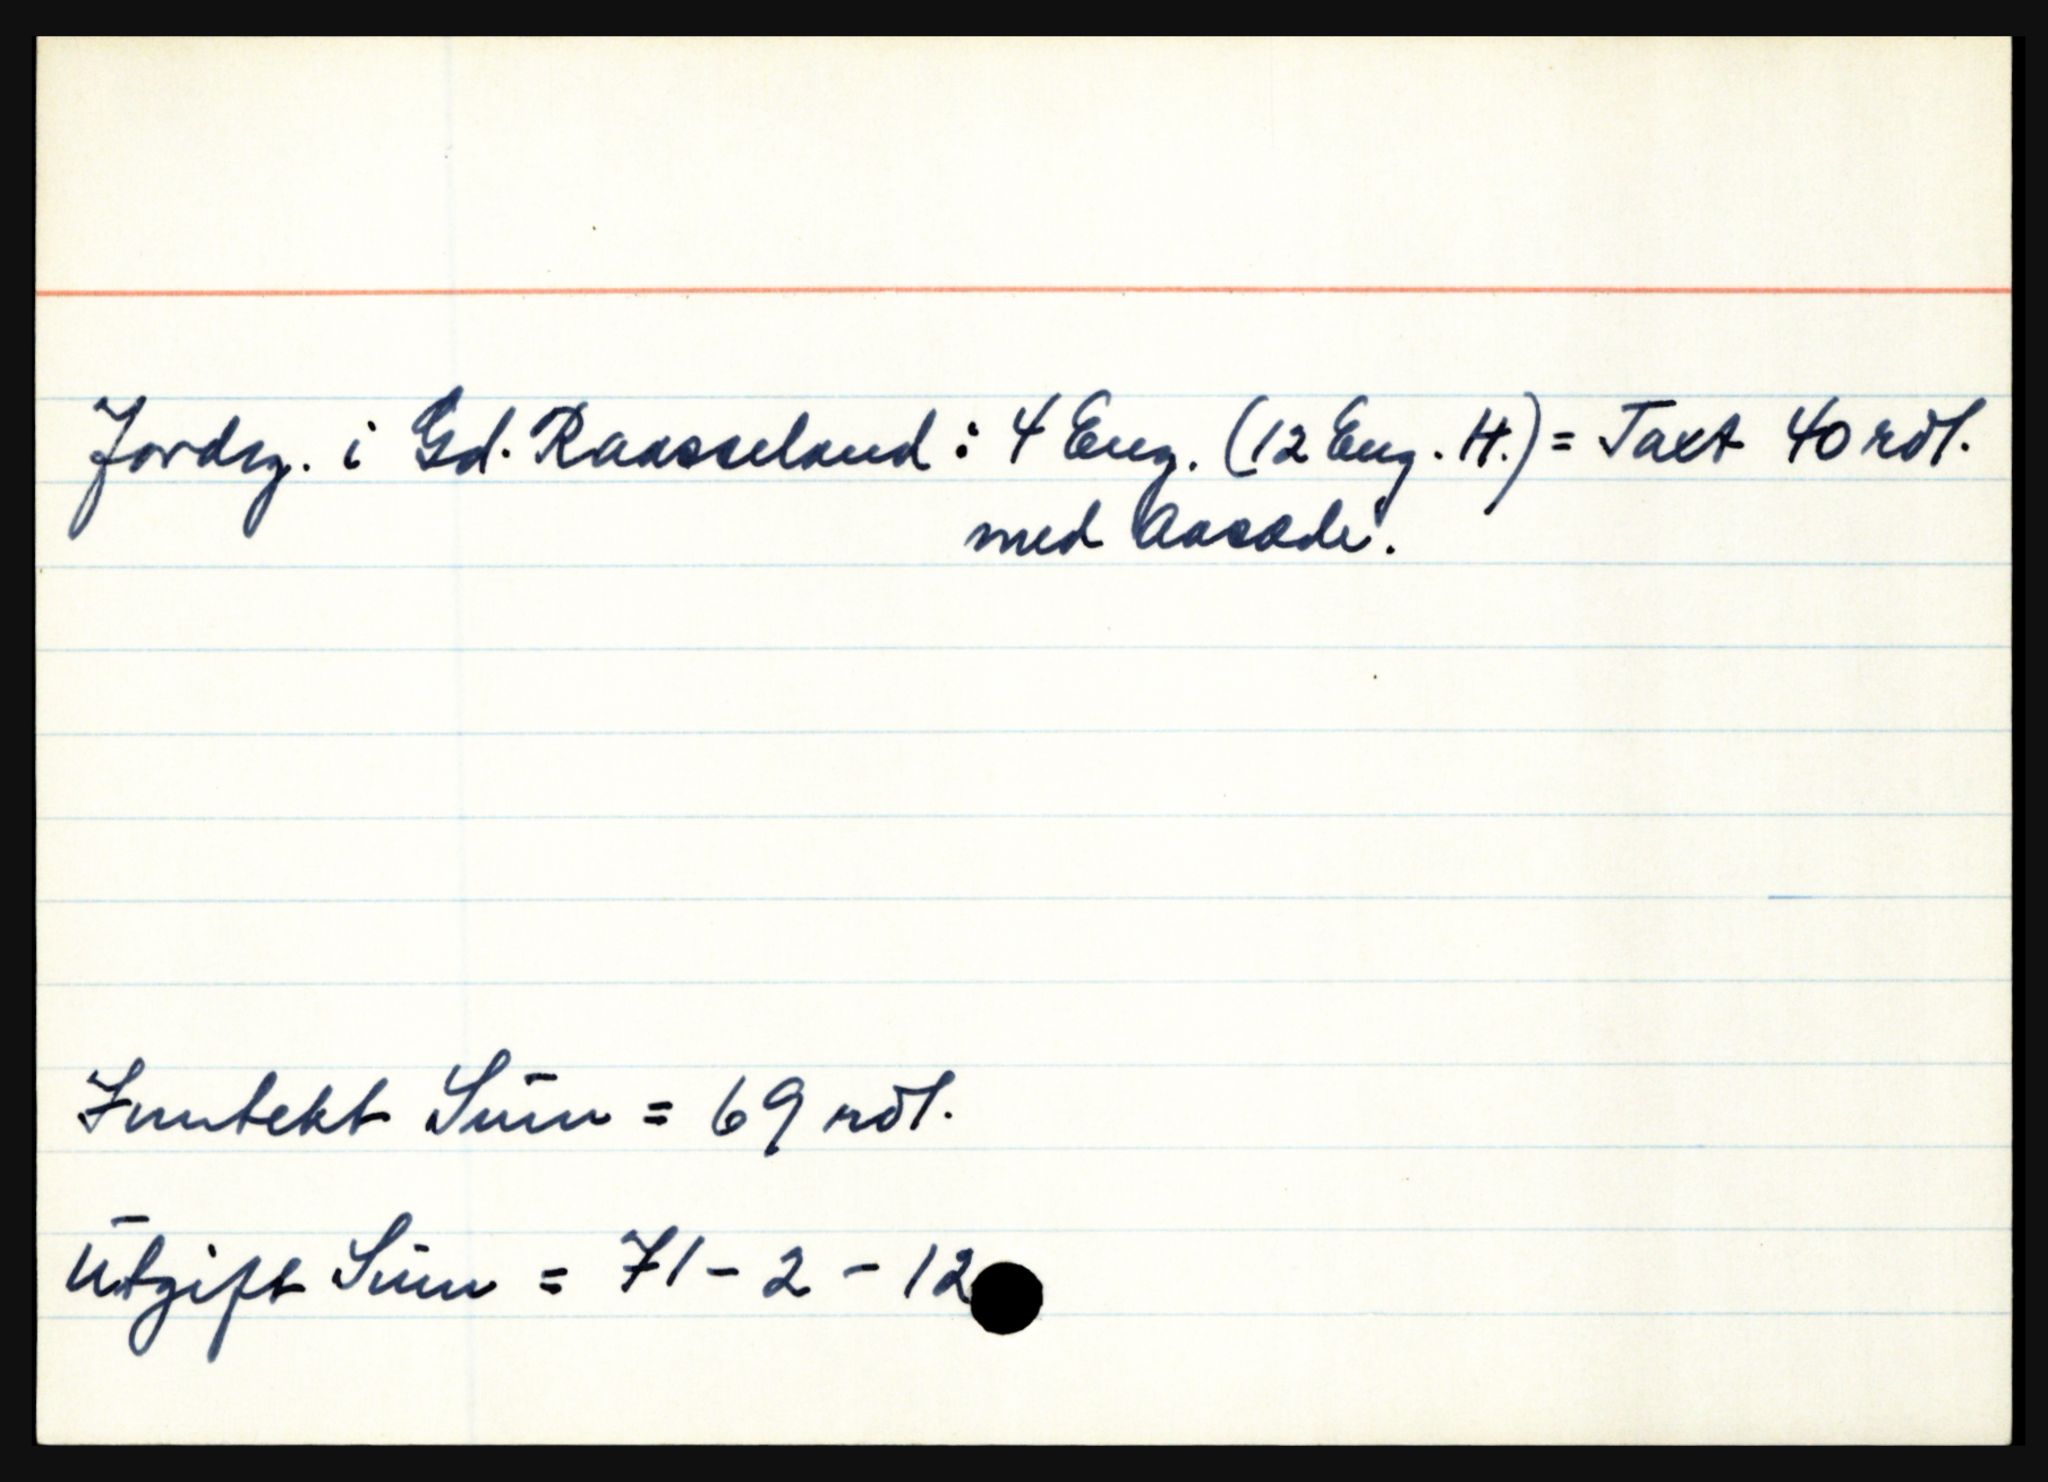 Jordsg. i Gd. Raasseland: 4 Eng. (12 Eng. H.) = Taxt 40 rdl.
med Aasæde.
Inntekt Sum = 69 rdl.
Utgift Sum = 71 - 2 - 12